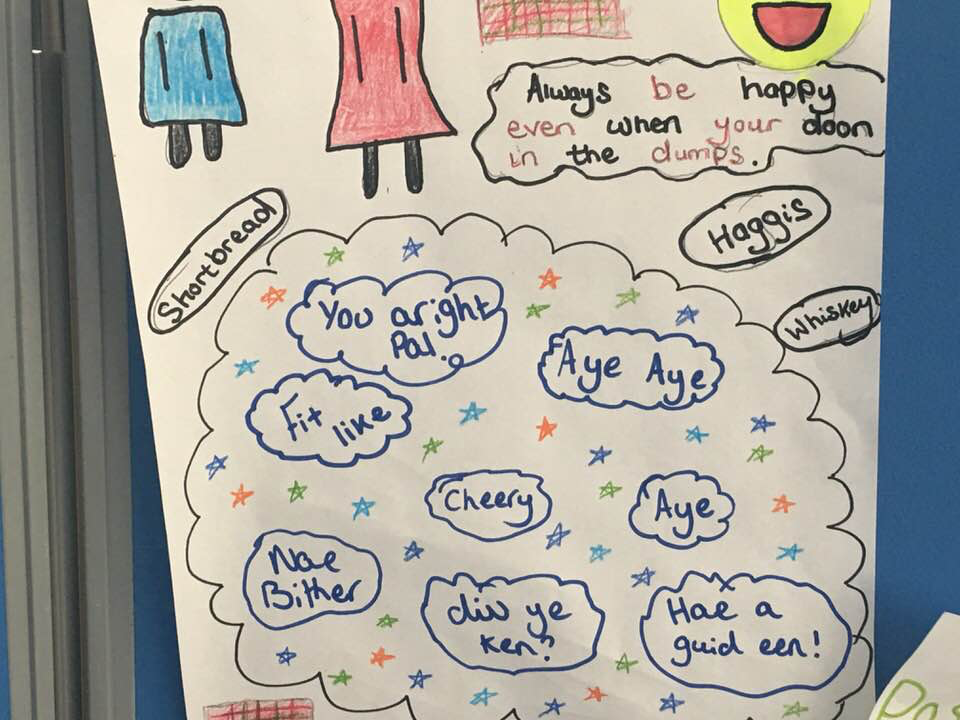 Always be happy
even when your doon
in the dumps.
Shortbread
Haggis
Whiskey
You aright
Pal.
Aye Aye
Fit like
Cheery
Aye
Nae
Bither
div ye
ken?
Hae a
guid een!